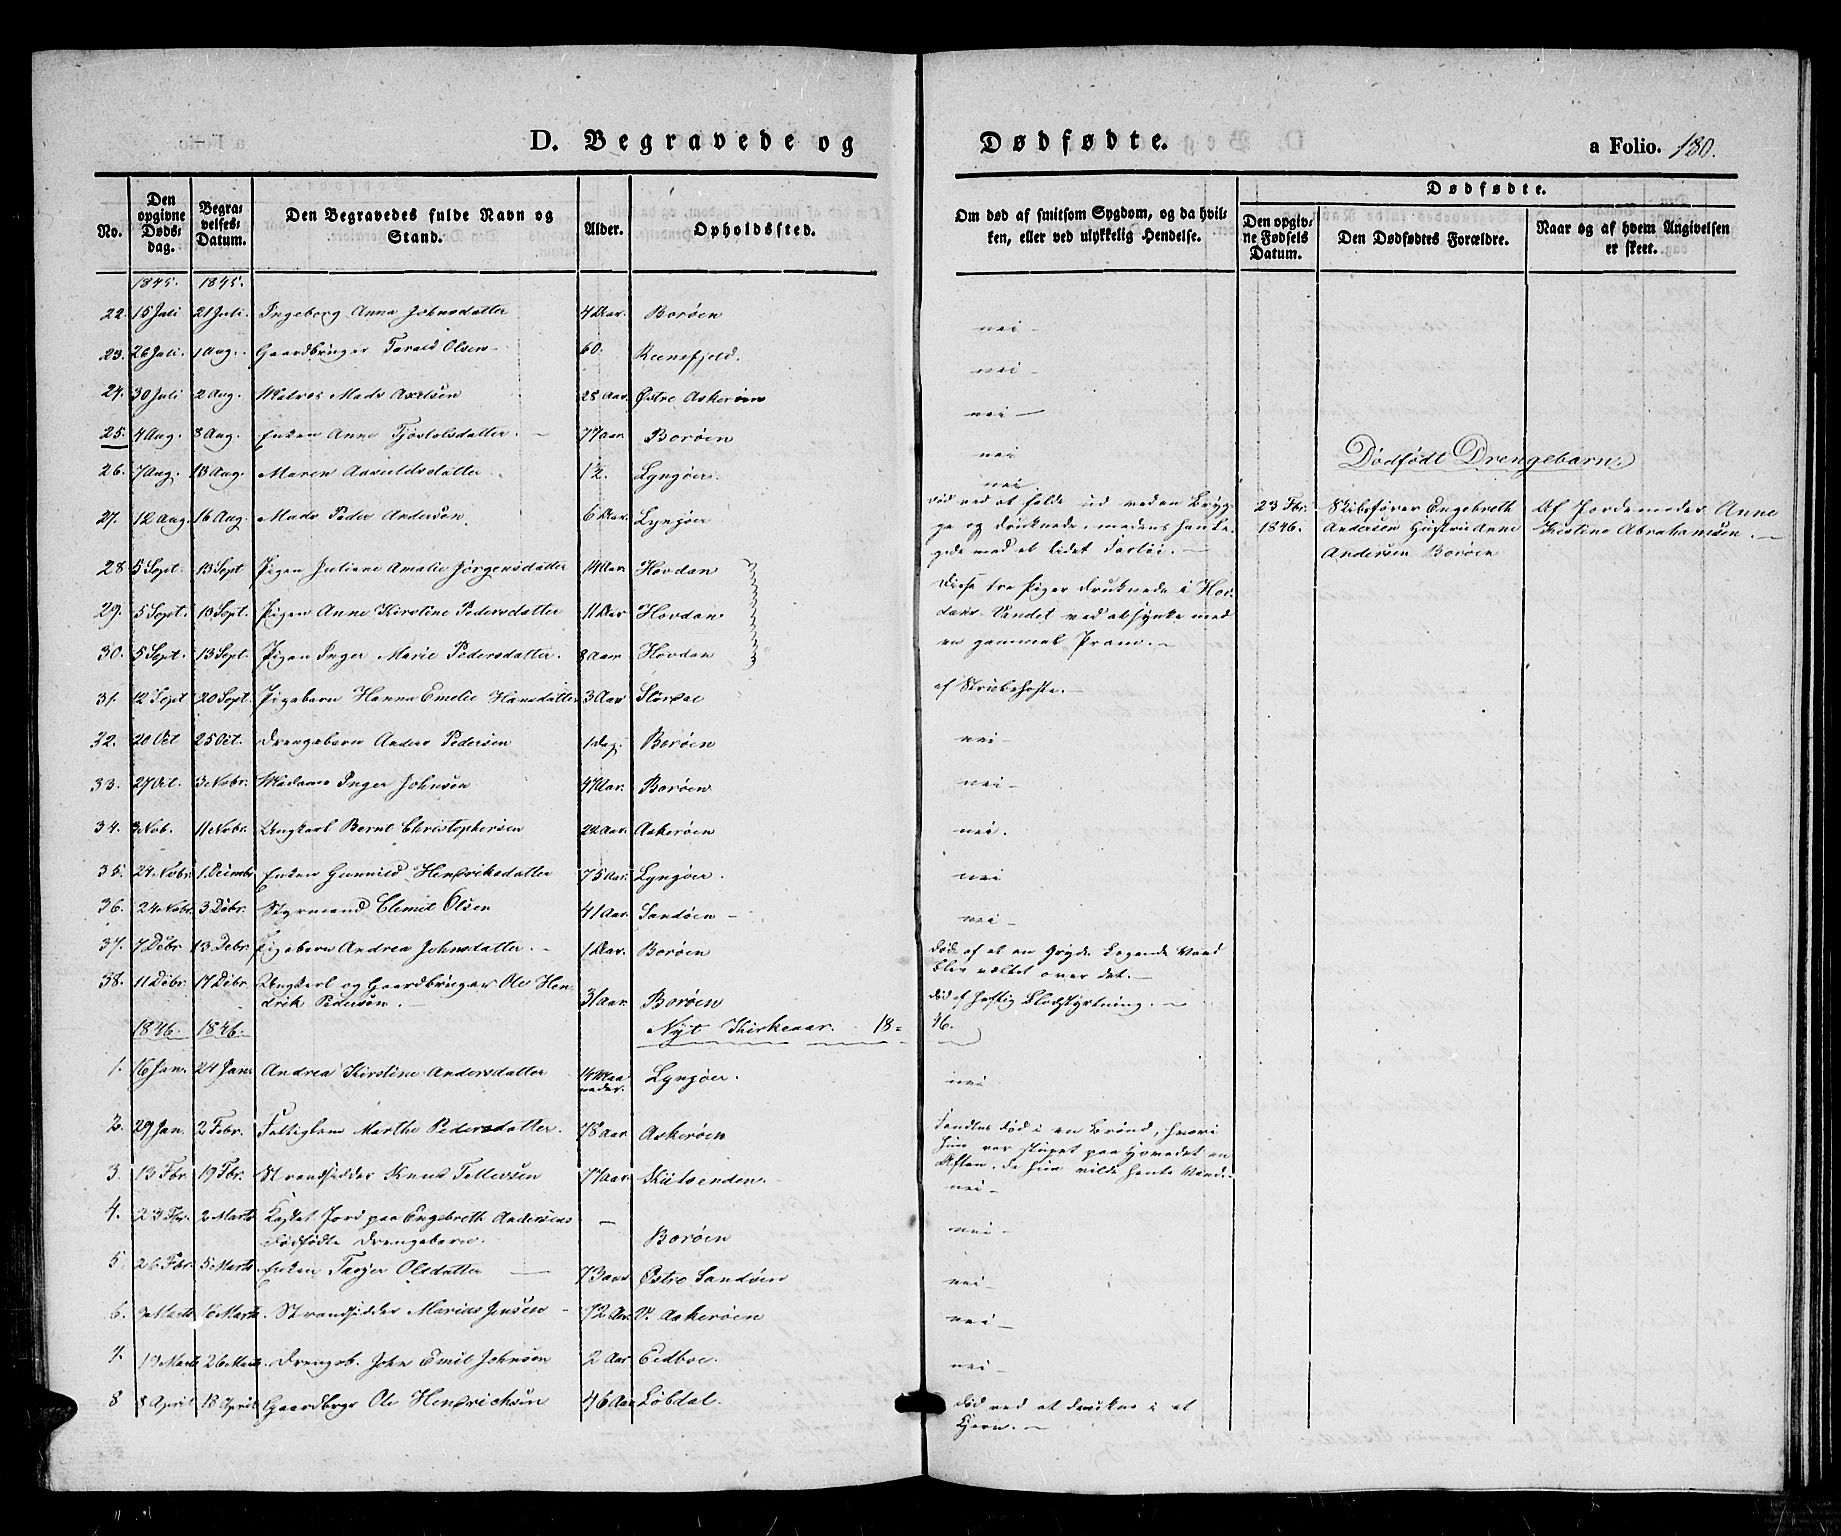 D. Begravede og Dødfødte.
a Folio. 180.
No. Den opgivne Døds-dag. Begra-velses-Datum. Den Begravedes fulde Navn og Stand. Alder. Opholdssted. Om død af smitsom Sygdom, og da hvil-ken, eller ved ulykkelig Hendelse. Dødfødte. Den opgiv-ne Fødsels Datum. Den Dødfødtes Forældre. Naar og af hvem Angivelsen er skeet.
1845. 1845.
22. 15 Juli 21 Juli. Ingeborg Anna Johnsdatter 4 Aar. Borøen nei -
23. 26 Juli. 1 Aug. Gaardbruger Tarald Olsen 60. nei -
24. 30 Juli 2 Aug. Matros Mads Axelsen 28 Aar. Østre Askerøen nei -
25. 4 Aug. 8 Aug. Enken Anne Tjostolsdatter. - 77 Aar. Borøen nei
Dødfødt Drengebarn.
26. 7 Aug. 13 Aug. Maren Aavuldsdatter 1/2. Lyngøer. nei.
27. 12 Aug. 16 Aug. Mads Peder Andersøn. 6 Aar. Lyngøer død ved at falde ud ved en Bryg-
ge og druknede, medens han le-
gede med et lidet Fartøi. -
23 Fbr. 1846. Skibsfører Engebreth
Andersen Hustru Anne
Andersen Borøen
Af Jordemoder Anne
Kistine Abrahamsen. -
28 5 Sept. 13 Sept Pigen Juliane Amalie Jørgensdatter 14 Aar. Hovdan
29. 5 Sept. 13 Sept. Pigen Anne Kirstine Pedersdatter 11 Aar Hovdan
30. 5 Sept. 13 Sept. Pigen Inger Marie Pedersdatter. 8 Aar Hovdan
Disse tre Piger druknede i Hov-
dans Vandet ved at synke med
en gammel Pram. -
31. 12 Sept 20 Sept. Pigebarn Hanna Emelie Hansdatter 3 Aar Stordal af Strubehoste. -
32. 20 Oct 25 Oct. Drengebarn Anders Pedersen 1 Dag. Borøen nei -
33. 27 Oct. 3 Nobr. Madame Inger Johnsøn 47 Aar. Borøen nei -
34. 3 Nob. 11 Nobr. Ungkarl Bernt Christophersen 22 Aar. Askerøen nei.
35. 24 Nobr. 1 Decimbr Enken Gunnild Hendriksdatter 75 Aar. Lyngøer. nei
36. 24 Nobr. 3 Debr. Styrmand Clemet Olsen 41 Aar. Sandøen - nei -
37. 7 Debr 13 Debr. Pigebarn Andrea Johnsdatter. - 1 Aar. Borøen døde af at en Gryde kogende Vand
blev væltet over det. -
38. 11 Debr. 17 Debr. Ungkarl og Gaardbruger Ole Hen-
drik Pedersøn. - 31 Aar. Borøen død af heftig Blodstyrtning. -
1846. 1846. Nyt Kirkeaar. 18=46.
1. 16 Jan. 24 Jan. Andrea Kirstine Andersdatter 14 Maa-
neder. Lyngøer. nei
2. 29 Jan. 2 Febr. Fattiglem Marthe Pedersdatter. 78 Aar. Askerøen Fandtes død i en Brønd, hvori
hun var stupet paa Hovedet en
Aften, da hun vilde hente Vand. -
3. 13 Fbr. 19 Fbr. Strandsidder Knud Tellevsen 77 Aar. nei -
4. 23 Fbr. 2 Marts Kastet Jord paa Engebreth Andersens
dødfødte Drengebarn. - Borøen nei -
5. 26 Fbr. 5 Marts Enken Tarjer Olsdatter - 73 Aar Østre Sandøen nei -
6. 3 Marts 10 Marts. Strandsidder Marius Jensen - 72 Aar. V. Askerøen nei -
7. 19 Marts 26 Marts. Drengeb. John Emil Johnsøn 2 Aar Eidboe. nei -
8 8 April 13 April Gaardbrgr Ole Hendrichsen 46 Aar Løvdal. død ved at drukne i et
Kjern. -